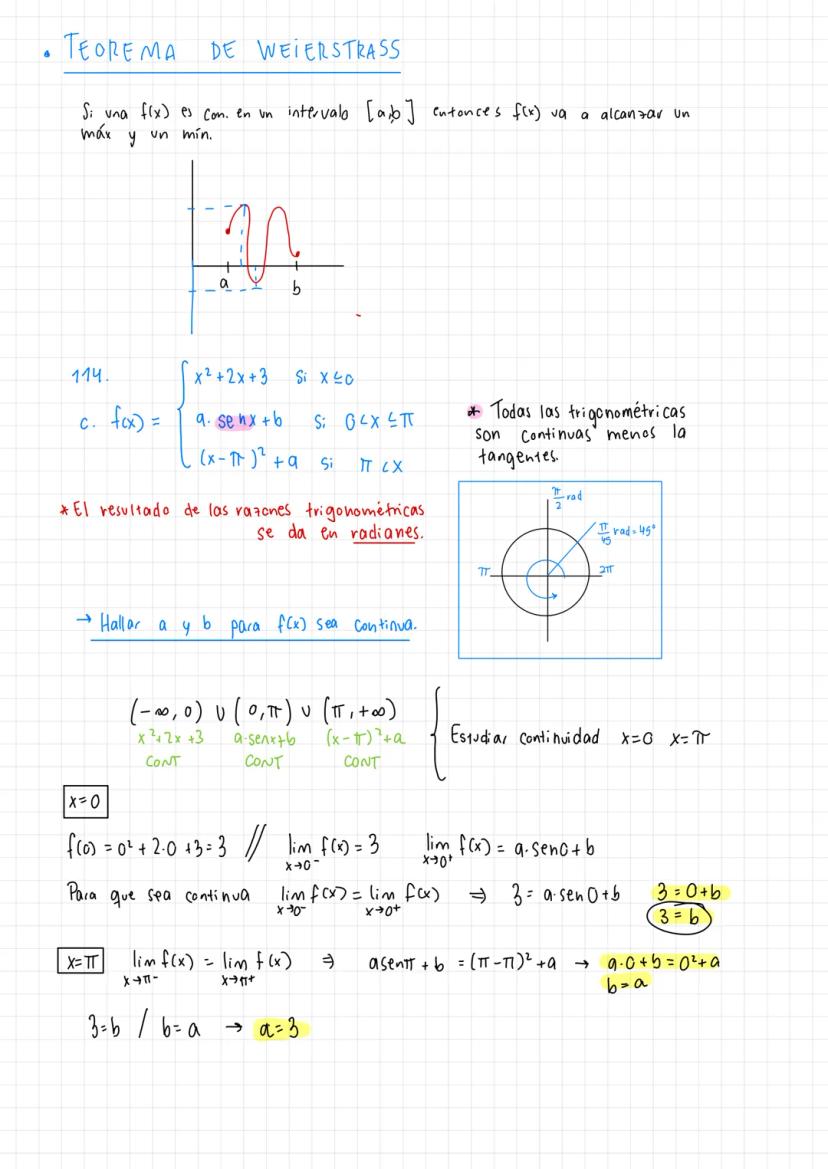 • TEOREMA DE WEIERSTRASS
Si una f(x) es con. en un intervalo [a,b] entonces f(x) va a alcanzar un
máx y un mín.
a
b
114.
c. f(x) = { x² + 2x + 3 Si x ≤ 0
a. senx + b Si 0 < x ≤ π
(x - π)² + a Si π < x
* Todas las trigonométricas
son continuas menos la
tangentes.
* El resultado de las razones trigonométricas
se da en radianes.
π/2 rad
π/45 rad = 45°
π
2π
→ Hallar a y b para f(x) sea continua.
(-∞, 0) ∪ (0, π) ∪ (π, +∞)
x² + 2x + 3 a·senx + b (x - π)² + a
CONT CONT CONT
{ Estudiar continuidad x=0 x=π
x=0
f(0) = 0² + 2·0 + 3 = 3 // lim x→0⁻ f(x) = 3 lim x→0⁺ f(x) = a·sen0 + b
Para que sea continua lim x→0⁻ f(x) = lim x→0⁺ f(x) ⇒ 3 = a·sen0 + b 3 = 0 + b
3 = b
x=π lim x→π⁻ f(x) = lim x→π⁺ f(x) ⇒ asenπ + b = (π - π)² + a → a·0 + b = 0² + a
b = a
3 = b / b = a → a = 3